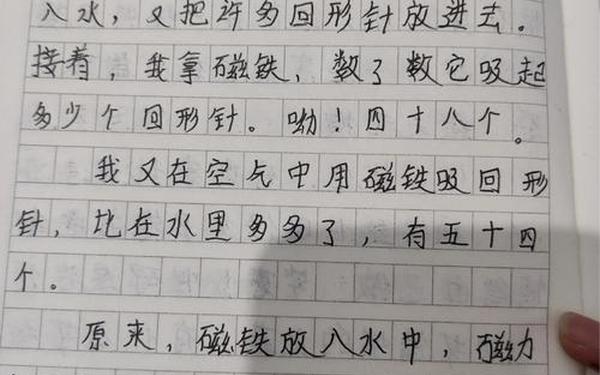 入水，又把许多回形针放进去。
接着，我拿磁铁，数了数它吸起
多少个回形针。呦！四十八个。
我又在空气中用磁铁吸回形
针，比在水里多多了，有五十四
个。
原来，磁铁放入水中，磁力